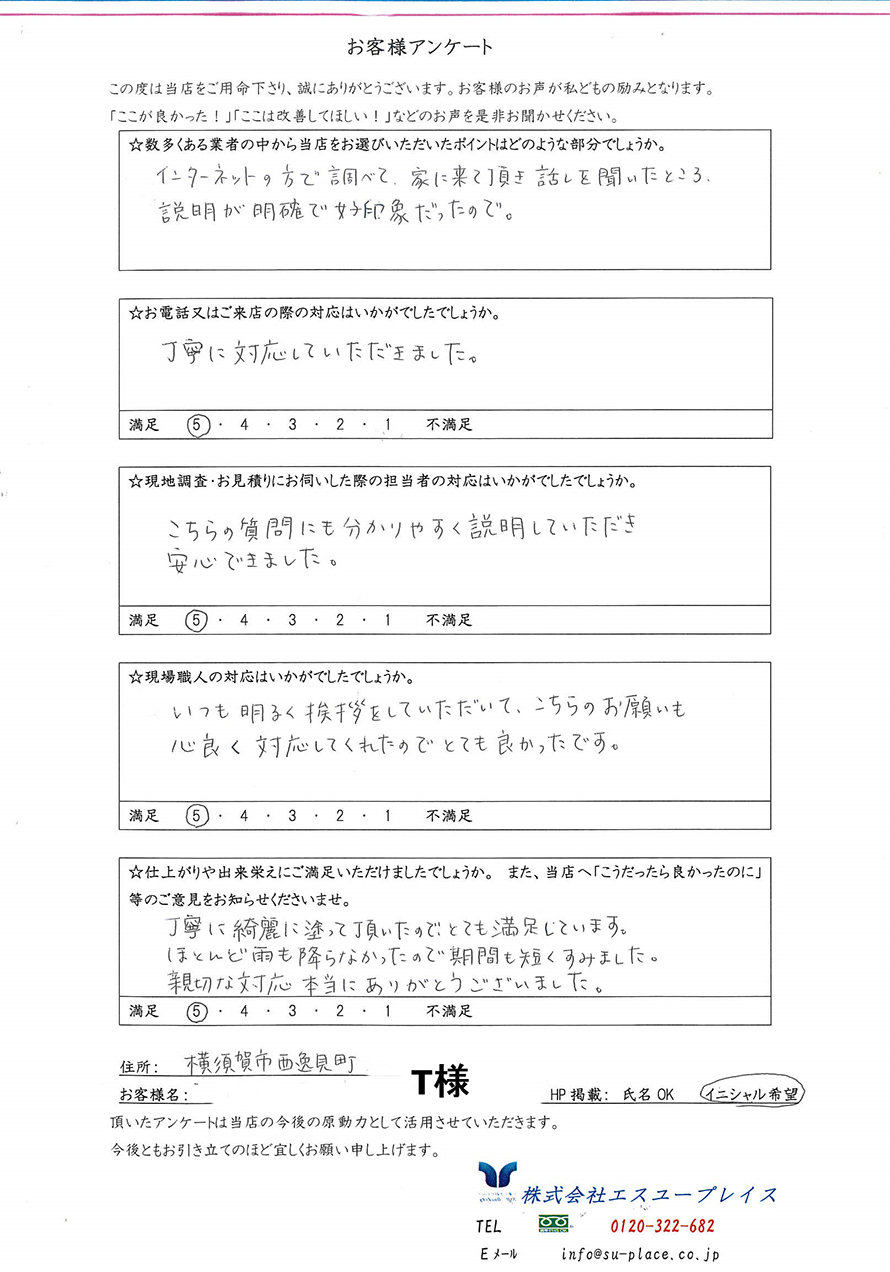 お客様アンケート
この度は当店をご用命下さり、誠にありがとうございます。お客様のお声が私どもの励みとなります。
「ここが良かった！」「ここは改善してほしい！」などのお声を是非お聞かせください。
☆数多くある業者の中から当店をお選びいただいたポイントはどのような部分でしょうか。
インターネットの方で調べて、家に来て頂き話しを聞いたところ、
説明が明確で好印象だったので。
☆お電話又はご来店の際の対応はいかがでしたでしょうか。
丁寧に対応していただきました。
満足 5 ・ 4 ・ 3 ・ 2 ・ 1 不満足
☆現地調査・お見積りにお伺いした際の担当者の対応はいかがでしたでしょうか。
こちらの質問にも分かりやすく説明していただき
安心できました。
満足 5 ・ 4 ・ 3 ・ 2 ・ 1 不満足
☆現場職人の対応はいかがでしたでしょうか。
いつも明るく挨拶をしていただいて、こちらのお願いも
心良く対応してくれたのでとても良かったです。
満足 5 ・ 4 ・ 3 ・ 2 ・ 1 不満足
☆仕上がりや出来栄えにご満足いただけましたでしょうか。 また、当店へ「こうだったら良かったのに」
等のご意見をお知らせくださいませ。
丁寧に綺麗に塗って頂いたのでとても満足しています。
ほとんど雨も降らなかったので期間も短くすみました。
親切な対応本当にありがとうございました。
満足 5 ・ 4 ・ 3 ・ 2 ・ 1 不満足
住所： 横須賀市西逸見町
お客様名： T様 HP掲載： 氏名OK イニシャル希望
頂いたアンケートは当店の今後の原動力として活用させていただきます。
今後ともお引き立てのほど宜しくお願い申し上げます。
株式会社エスユープレイス
TEL 0120-322-682
Eメール info@su-place.co.jp